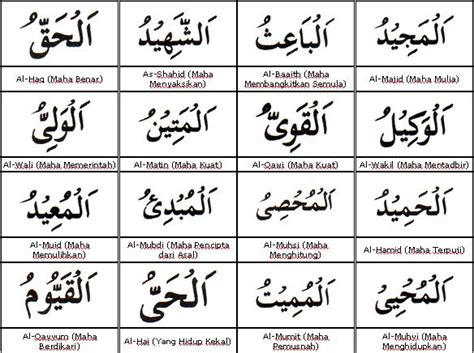 اَلْحَقُّ
اَلشَّهِيْدُ
اَلْبَاعِثُ
اَلْمَجِيْدُ
Al-Haq (Maha Benar)
As-Shahid (Maha
Menyaksikan)
Al-Baaith (Maha
Membangkitkan Semula)
Al-Majid (Maha Mulia)
اَلْوَلِيُّ
اَلْمَتِيْنُ
اَلْقَوِيُّ
اَلْوَكِيْلُ
Al-Wali (Maha Memerintah)
Al-Matin (Maha Kuat)
Al-Qawi (Maha Kuat)
Al-Wakil (Maha Mentadbir)
اَلْمُعِيْدُ
اَلْمُبْدِئُ
اَلْمُحْصِيُ
اَلْحَمِيْدُ
Al-Muid (Maha
Memulihkan)
Al-Mubdi (Maha Pencipta
dari Asal)
Al-Muhsi (Maha
Menghitung)
Al-Hamid (Maha Terpuji)
اَلْقَيُّوْمُ
اَلْحَيُّ
اَلْمُمِيْتُ
اَلْمُحْيِيُ
Al-Qayyum (Maha
Berdikari)
Al-Hai (Yang Hidup Kekal)
Al-Mumit (Maha
Pemusnah)
Al-Muhyi (Maha
Menghidupkan)